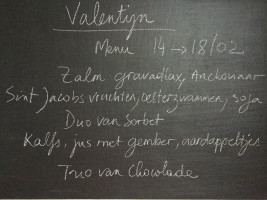 Valentijn
Menu 14 → 18/02
Zalm gravadlax, Anckonaar
Sint Jacobs vruchten, oesterzwammen, soja
Duo van Sorbet
Kalfs, jus met gember, aardappeltjes
Trio van Chocolade